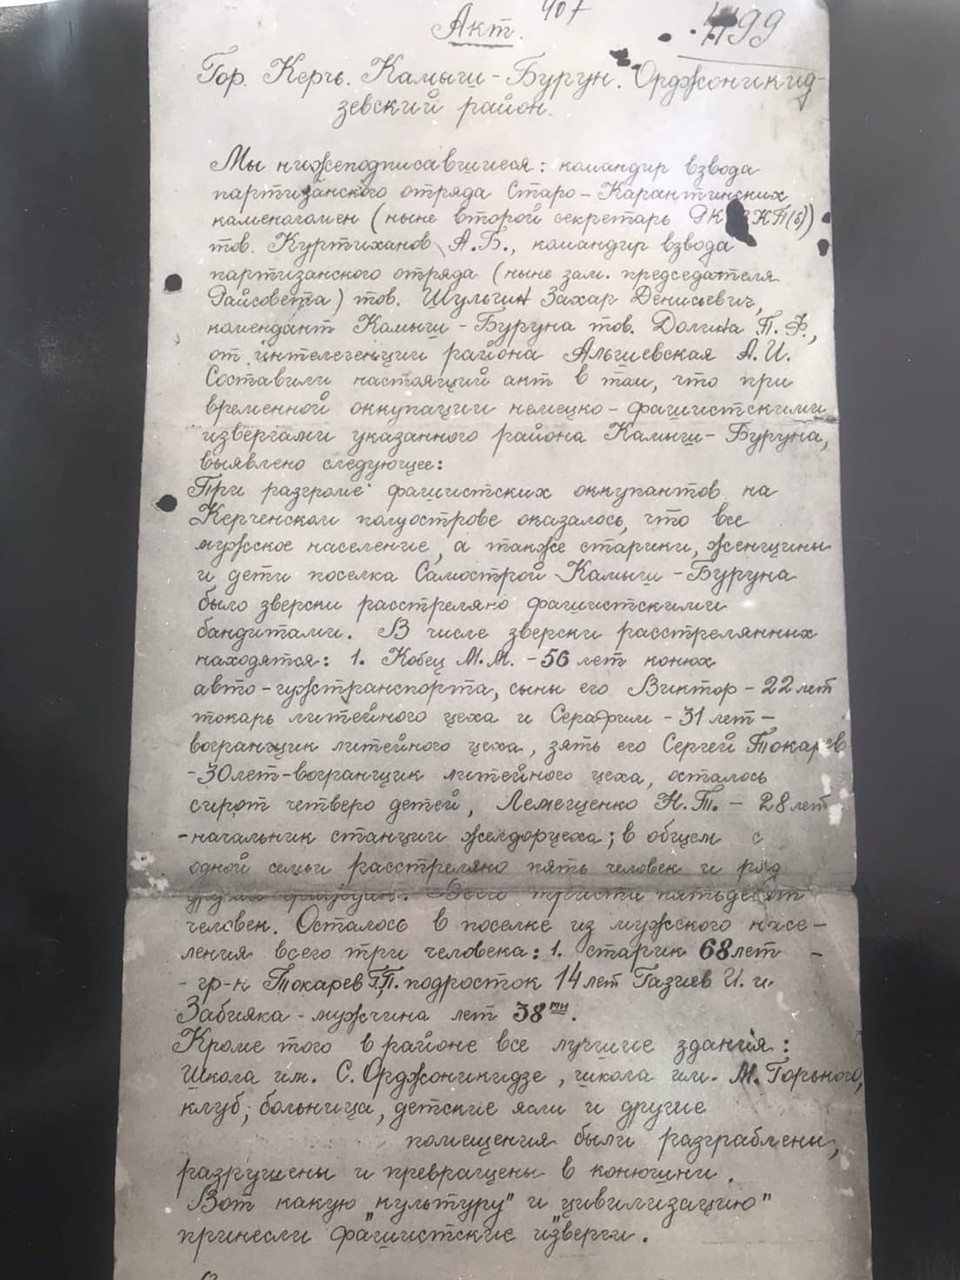 407
499
Акт.
Гор. Керчь. Камыш-Бурун. Орджоникид-
зевский район.
Мы нижеподписавшиеся: командир взвода
партизанского отряда Старо-Карантинских
каменоломен (ныне второй секретарь РК ВКП(б))
тов. Куртиханов А.Б., командир взвода
партизанского отряда (ныне зам. председателя
Райсовета) тов. Шульгин Захар Денисьевич,
комендант Камыш-Буруна тов. Долина П.Ф.,
от интелегенции района Альшевская А.И.
Составили настоящий акт в том, что при
временной оккупации немецко-фашистскими
извергами указанного района Камыш-Буруна,
выявлено следующее:
При разгроме фашистских оккупантов на
Керченском полуострове оказалось, что все
мужское население, а также старики, женщины
и дети поселка Самострой Камыш-Буруна
было зверски расстреляно фашистскими
бандитами. В числе зверски расстрелянных
находятся: 1. Кобец М.М. - 56 лет конюх
авто-гужтранспорта, сыны его Виктор - 22 лет
токарь литейного цеха и Серафим - 31 лет -
вогранщик литейного цеха, зять его Сергей Токарев
- 30 лет - вогранщик литейного цеха, осталось
сирот четверо детей, Лемещенко Н.Т. - 28 лет
- начальник станции желдорцеха; в общем с
одной семьи расстреляно пять человек и ряд
других граждан. Всего триста пятьдесят
человек. Осталось в поселке из мужского насе-
ления всего три человека: 1. старик 68 лет -
- гр-н Токарев Г.П. подросток 14 лет Газиев И. и
Забияка - мужчина лет 38ми.
Кроме того в районе все лучшие здания:
Школа им. С. Орджоникидзе, школа им. М. Горького,
клуб, больница, детские ясли и другие
помещения были разграблены,
разрушены и превращены в конюшни.
Вот какую "культуру" и цивилизацию"
принесли фашистские "изверги.